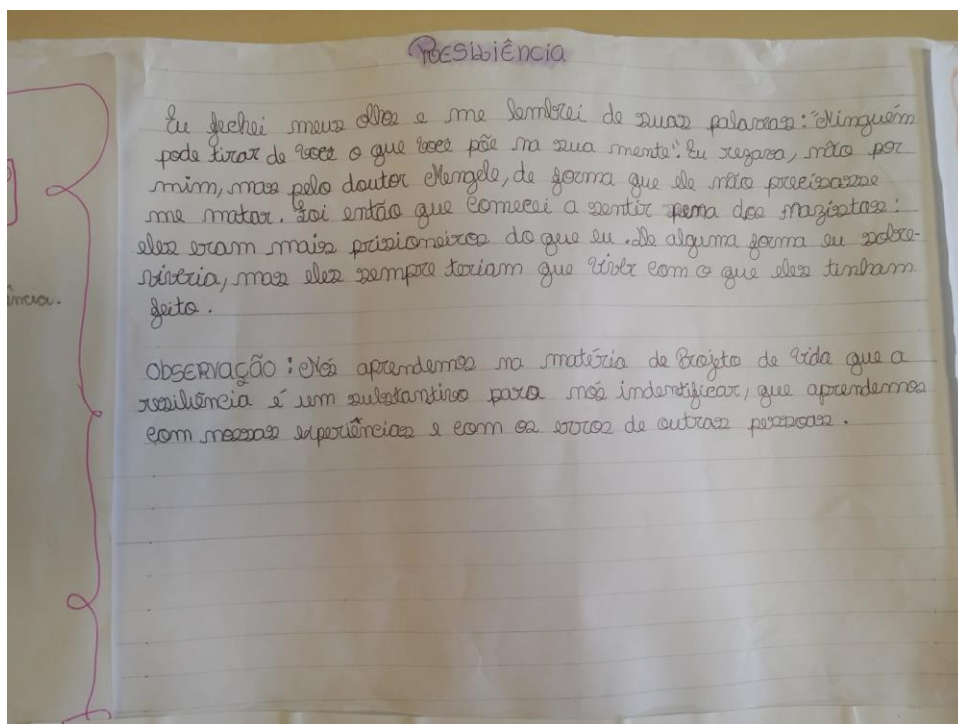 RESILIÊNCIA
Eu fechei meus olhos e me lembrei de suas palavras: "Ninguém
pode tirar de você o que você põe na sua mente". Eu rezava, não por
mim, mas pelo doutor Mengele, de forma que ele não precisasse
me matar. Foi então que comecei a sentir pena dos nazistas:
eles eram mais prisioneiros do que eu. De alguma forma eu sobre-
viveria, mas eles sempre teriam que viver com o que eles tinham
feito.
OBSERVAÇÃO: Nós aprendemos na matéria de Projeto de vida que a
resiliência é um substantivo para nós indentificar, que aprendemos
com nossas experiências e com os erros de outras pessoas.
ência.